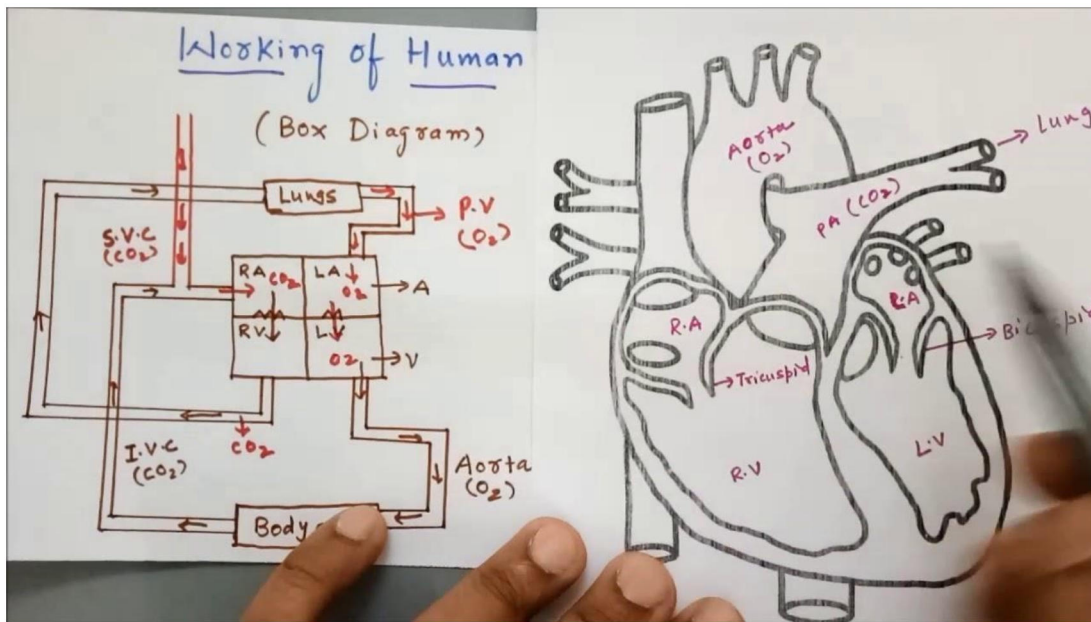 Working of Human
(Box Diagram)
Lungs
P.V
(O₂)
S.V.C
(CO₂)
RA
CO₂
LA
O₂
A
RV
L.V
O₂
V
I.V.C
(CO₂)
CO₂
Aorta
(O₂)
Body
Aorta
(O₂)
PA (CO₂)
Lung
R.A
R.A
Tricuspid
R.V
L.V